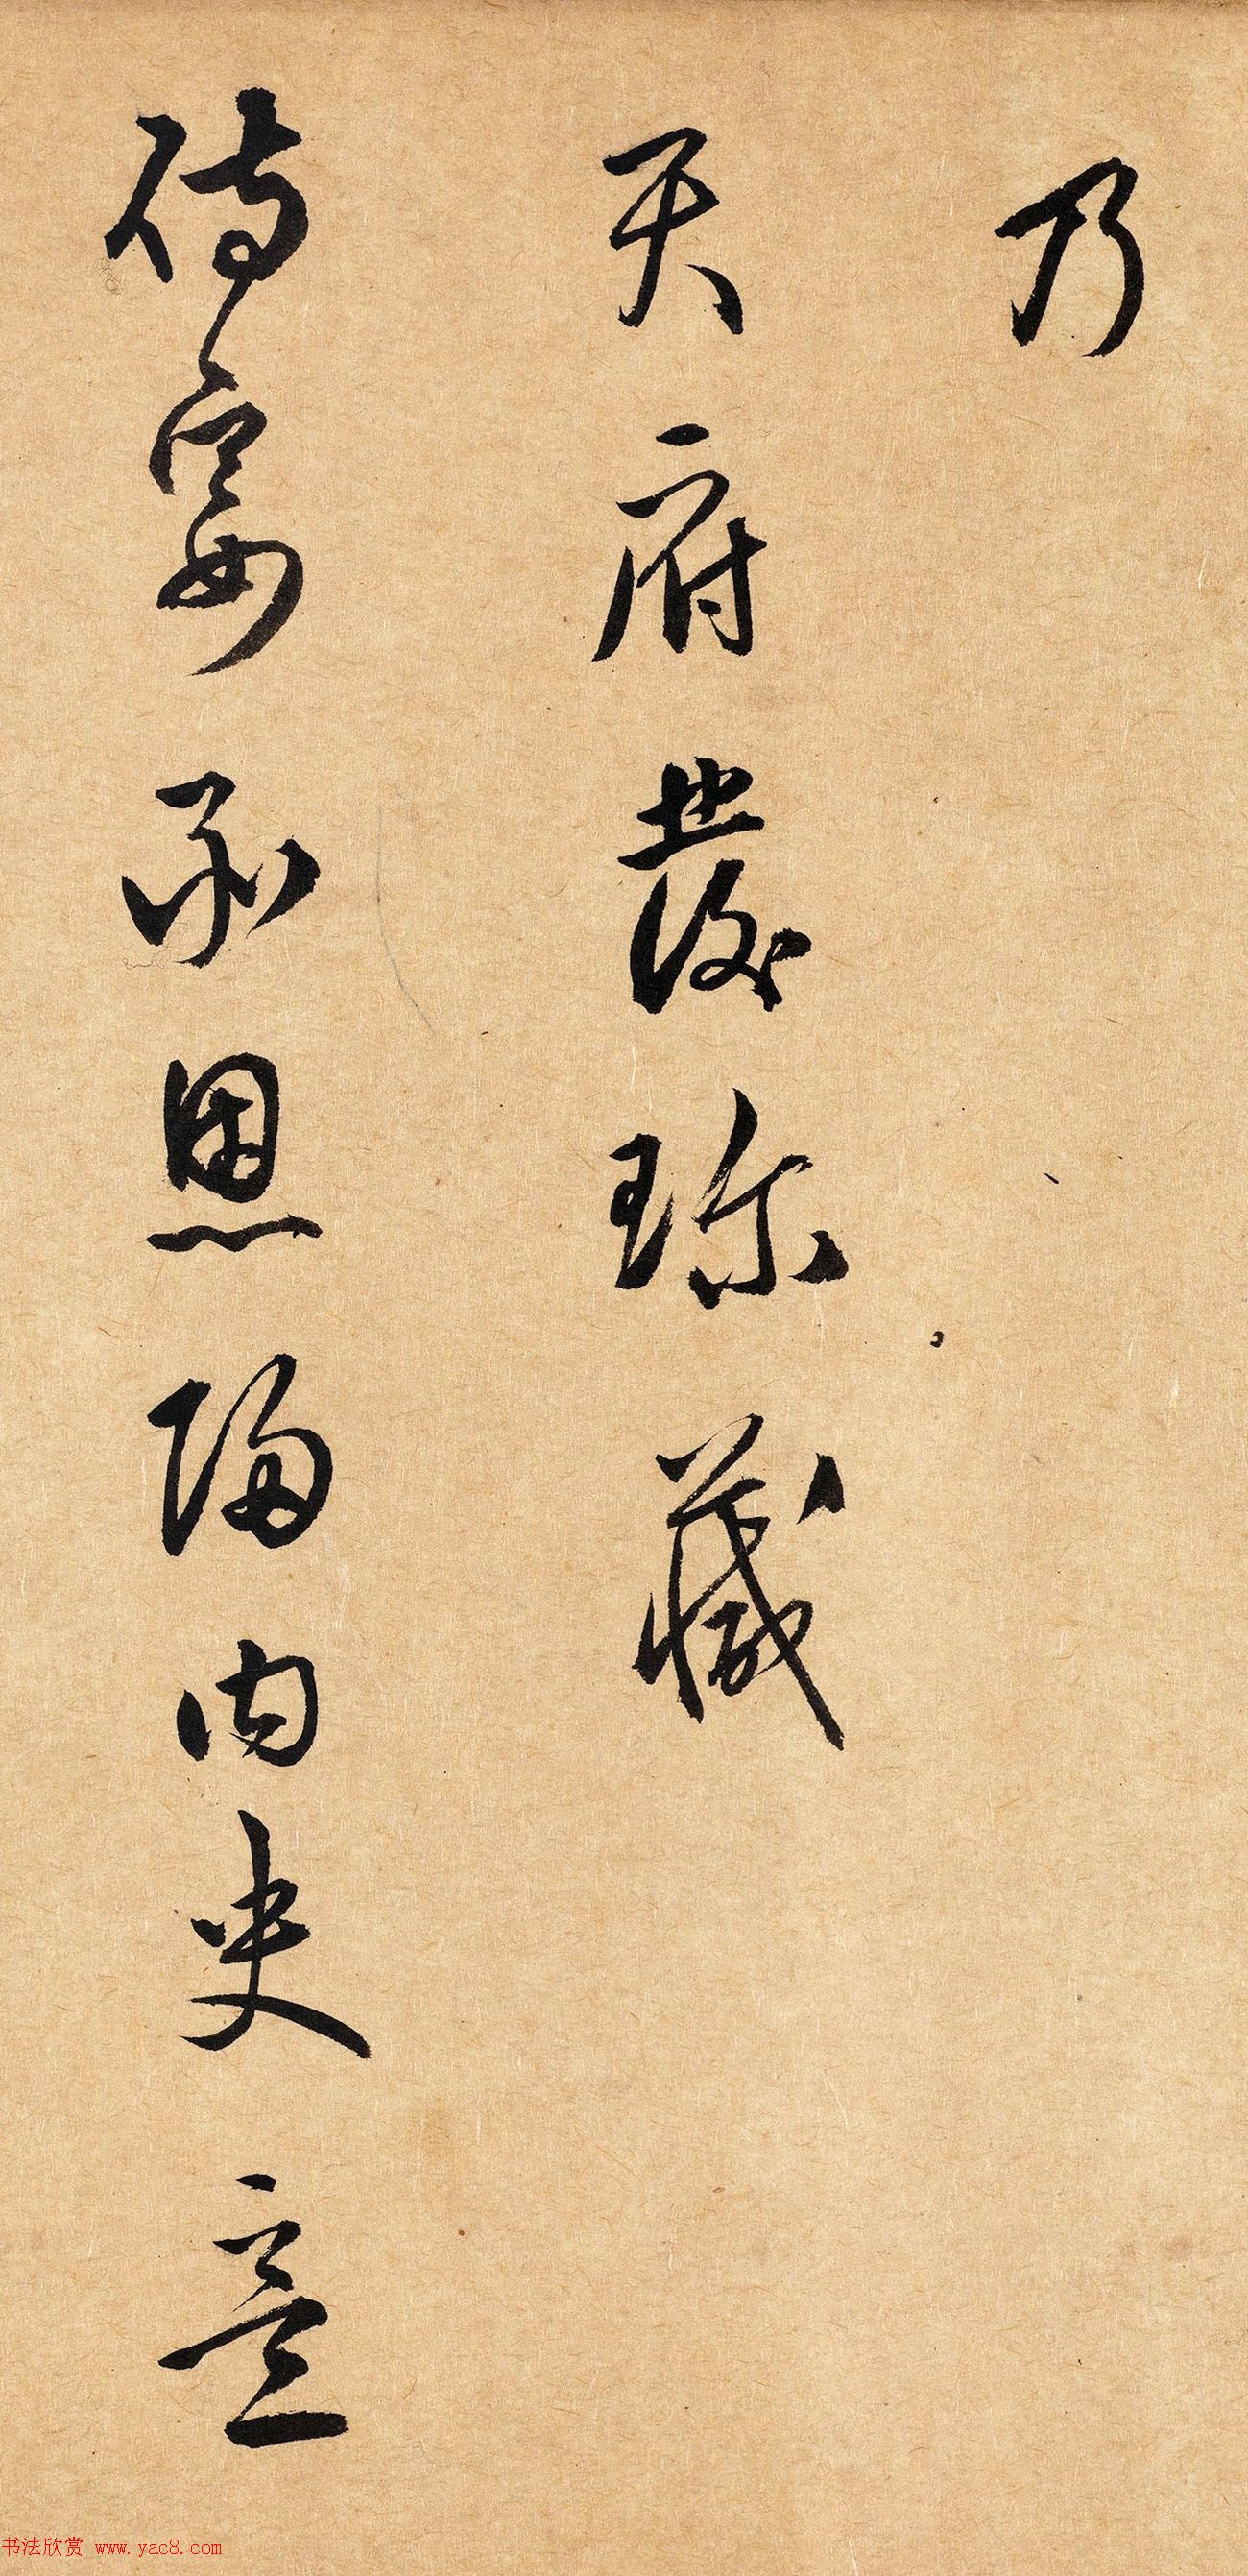 乃
天府發珍藏
侍宴承恩歸内史意
书法欣赏 www.yac8.com